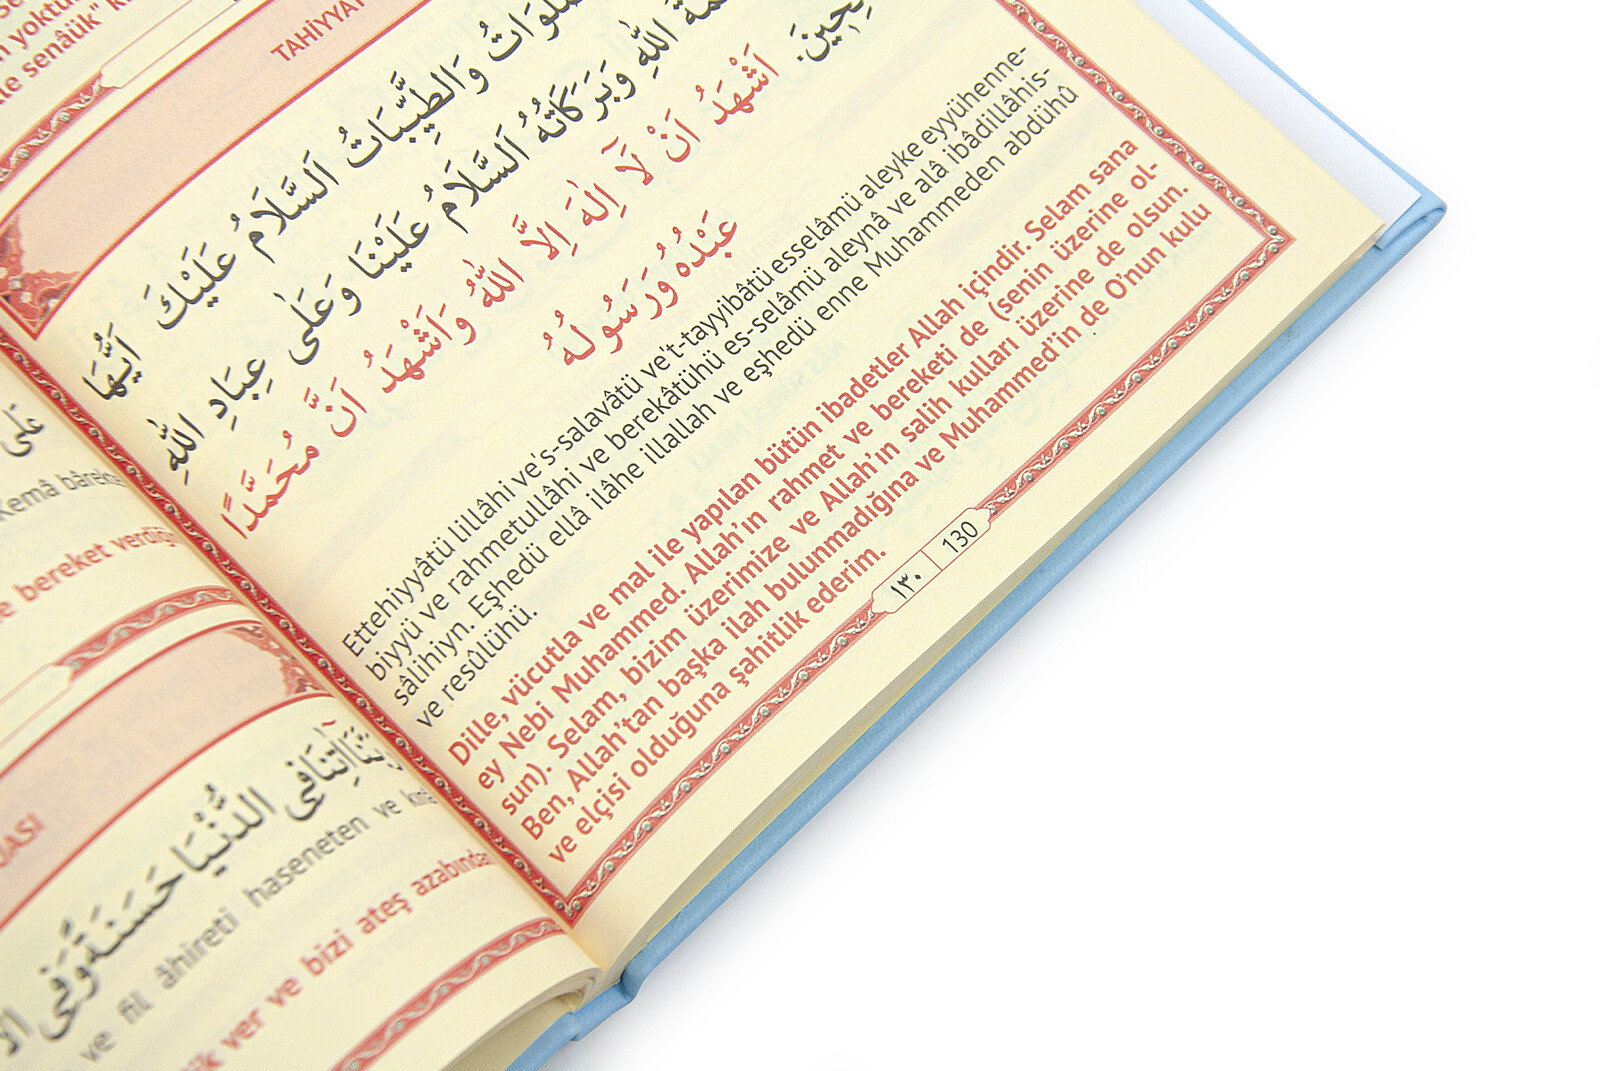 n yoktur
le senâük" k
عَلَى
Kemâ bârekte
e bereket verdiğin
UASI
اٰتِنَا فِي الدُّنْيَا حَسَنَةً وَفِي
ve fil âhireti haseneten ve kınâ
ver ve bizi ateş azabından
TAHİYYAT
وَالطَّيِّبَاتُ اَلسَّلَامُ عَلَيْكَ اَيُّهَا
اللّٰهِ وَبَرَكَاتُهُ اَلسَّلَامُ عَلَيْنَا وَعَلٰى عِبَادِ اللّٰهِ
اَشْهَدُ اَنْ لَٓا اِلٰهَ اِلَّا اللّٰهُ وَاَشْهَدُ اَنَّ مُحَمَّدًا
عَبْدُهُ وَرَسُولُهُ
Ettehiyyâtü lillâhi ve's-salavâtü ve't-tayyibâtü esselâmü aleyke eyyühenne-
biyyü ve rahmetullâhi ve berekâtühü es-selâmü aleynâ ve alâ ibâdillâhis-
sâlihiyn. Eşhedü ellâ ilâhe illallah ve eşhedü enne Muhammeden abdühû
ve resûlühü.
Dille, vücutla ve mal ile yapılan bütün ibadetler Allah içindir. Selam sana
ey Nebi Muhammed. Allah'ın rahmet ve bereketi de (senin üzerine ol-
sun). Selam, bizim üzerimize ve Allah'ın salih kulları üzerine de olsun.
Ben, Allah'tan başka ilah bulunmadığına ve Muhammed'in de O'nun kulu
ve elçisi olduğuna şahitlik ederim.
١٣٠ 130